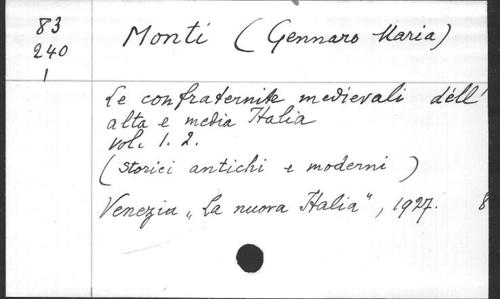 83
240
1
Monti (Gennaro Maria)
Le confraternite medievali dell'
alta e media Italia
vol. 1. 2.
(Storici antichi e moderni)
Venezia „La nuova Italia", 1927. 8